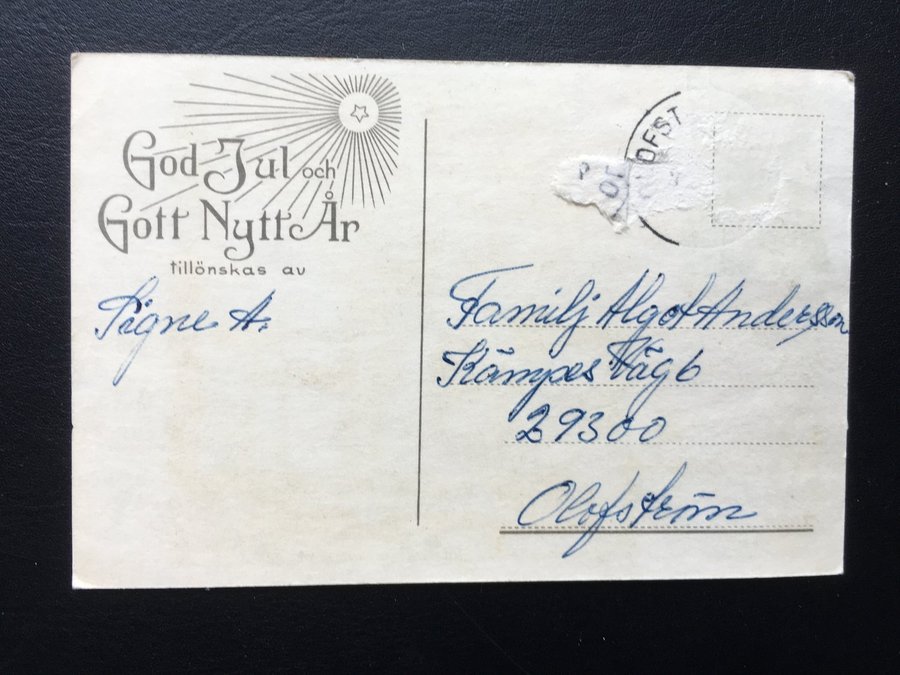 God Jul och
Gott Nytt År
tillönskas av
Signe A.
OFST
Familj Algot Andersson
Kämpes Väg 6
29300
Olofström